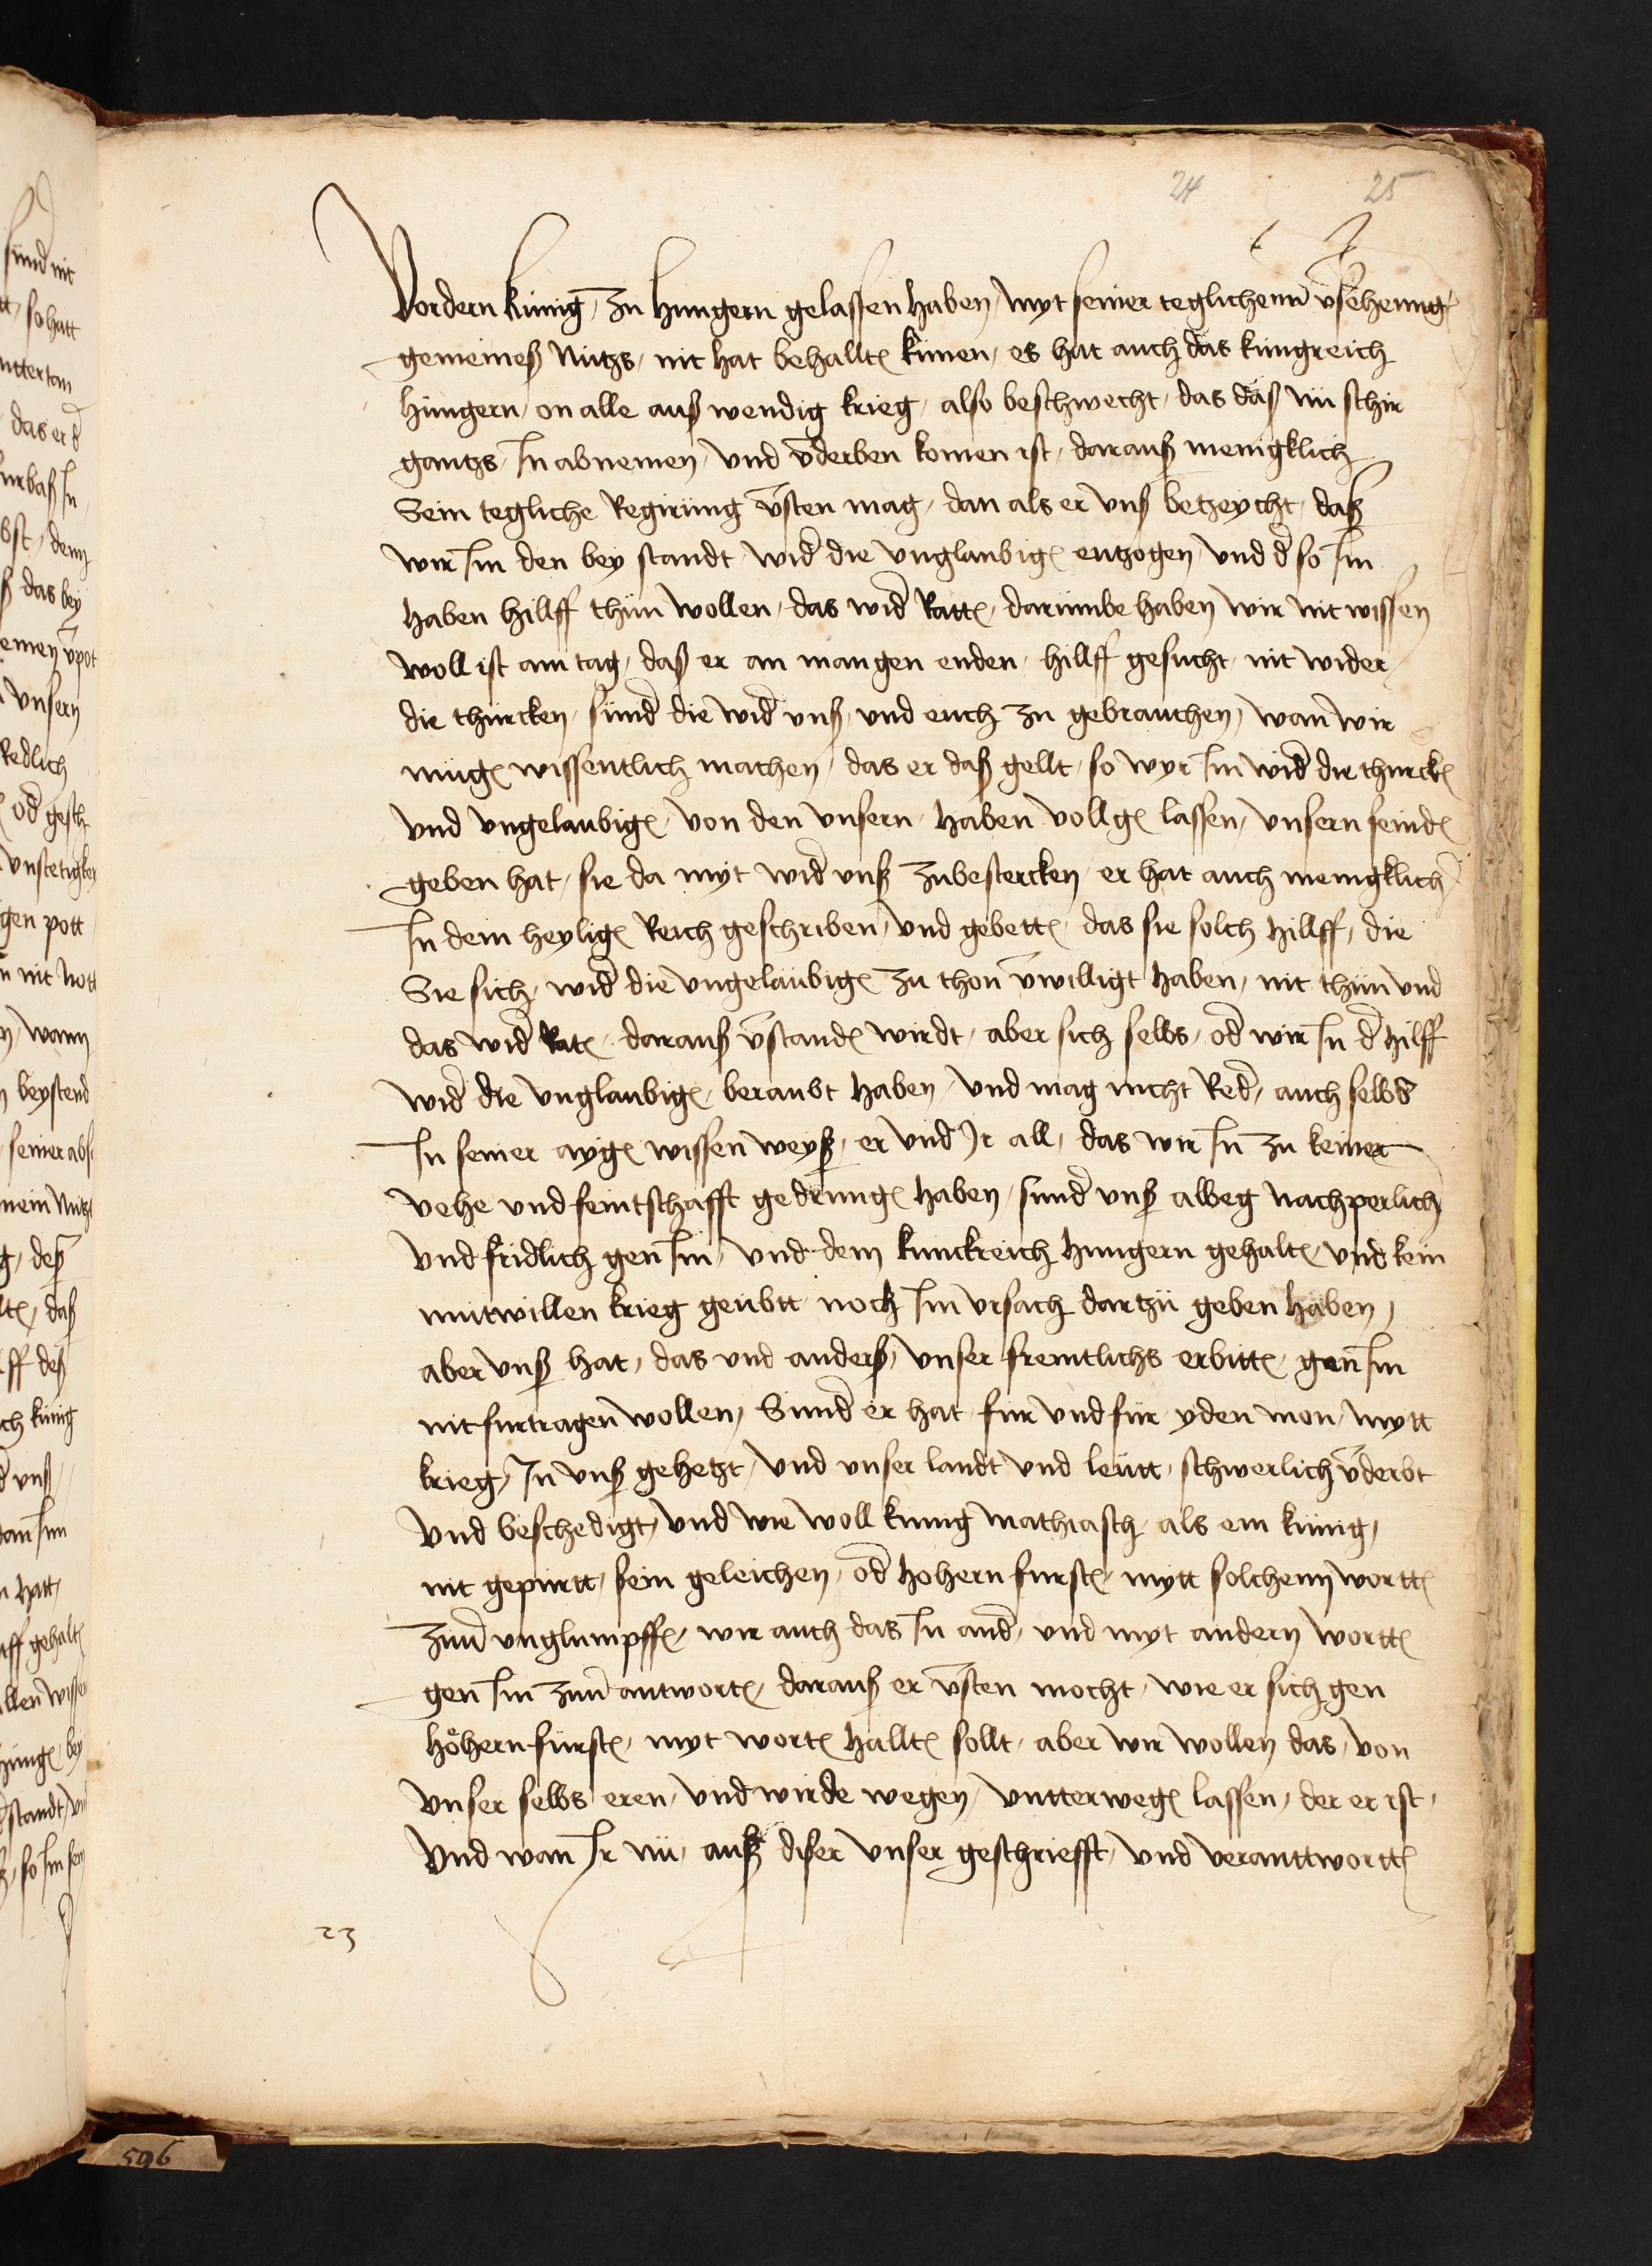 24 25
Vordern künig, zu hungern gelassen haben, myt seiner teglichenn v̄sehenng
gemeines Nutzs, nit hat behallt(e)n künen, es hat auch das kungreich
hungern, on alle auß wendig krieg, also beschwecht, das daß nü schir
gantzs, In abnemen, vnd v̄derben komen ist, darauß menigklich
Sein tegliche Regirüng v̄sten mag, dan als er vnß betzeycht, daß
wir Im den bey standt wid(er) die vnglaubig(en) entzogen, vnd d(er) so Im
haben hillff thün wollen, das wid(er) Ratt(en), darümbe haben wir nit wissen
woll ist am tag, daß er an mangen enden, hillff gesucht, nit wider
die thürcken, sund(er) die wid(er) vnß, vnd euch zu gebrauchen, wan wir
müg(en) wissentlich machen, das er daß gellt, so wyr Im wid(er) die thurck(en)
vnd vngelaubig(en), von den vnsern, haben vollg(en) lassen, vnsern feind(en)
geben hat, sie da myt wid(er) vnß zubestercken, er hat auch menigklich
In dem heylig(en) Reich geschriben, vnd gebett(en), das sie solch hillff, die
Sie sich, wid(er) die vngelaubig(en) zu thon v̄willigt haben, nit thün vnd
das wid(er) Rat(en), darauß v̄stand(en) wirdt, aber sich selbs, od(er) wir In d(er) hilff
wid(er) die vnglaubig(en), beraubt haben, vnd mag nicht Red(en), auch selbs
In seiner ayg(en) wissen weyß, er vnd Ir all, das wir In zu keiner
vehe vnd feintschafft gedrung(en) haben, sund(er) vnß albeg nachperlich
vnd fridlich gen Im, vnd dem kunckreich hungern gehalt(en), vnd kein
mutwillen krieg geübtt noch Im vrsach dartzü geben haben,
aber vnß hat, das vnd anderß, vnser freintlichs erbitt(en), gen Im
nit furtragen wollen, Sund(er) er hat für vnd für yden mon, mytt
krieg, In vnß gehetzt, vnd vnser landt vnd leütt, schwerlich v̄derbt
vnd beschedigt, vnd wie woll kunig mathiasch, als ein künig,
nit gepürtt, sein geleichen, od(er) hohern furst(en), mytt solchenn wortt(en)
zuu(er) vnglumpff(en), wir auch das In and(er), vnd myt andern wortt(en)
gen Im zuu(er) antwort(en), darauß er v̄sten mocht, wie er sich gen
höhern fürst(en), myt wort(en) hallt(en) sollt, aber wir wollen das, von
vnser selbs eren, vnd wirde wegen, vntterweg(en) lassen, der er ist,
Vnd wan Ir nü, auß diser vnser geschriefft, vnd veranttwortt(en)
23
596